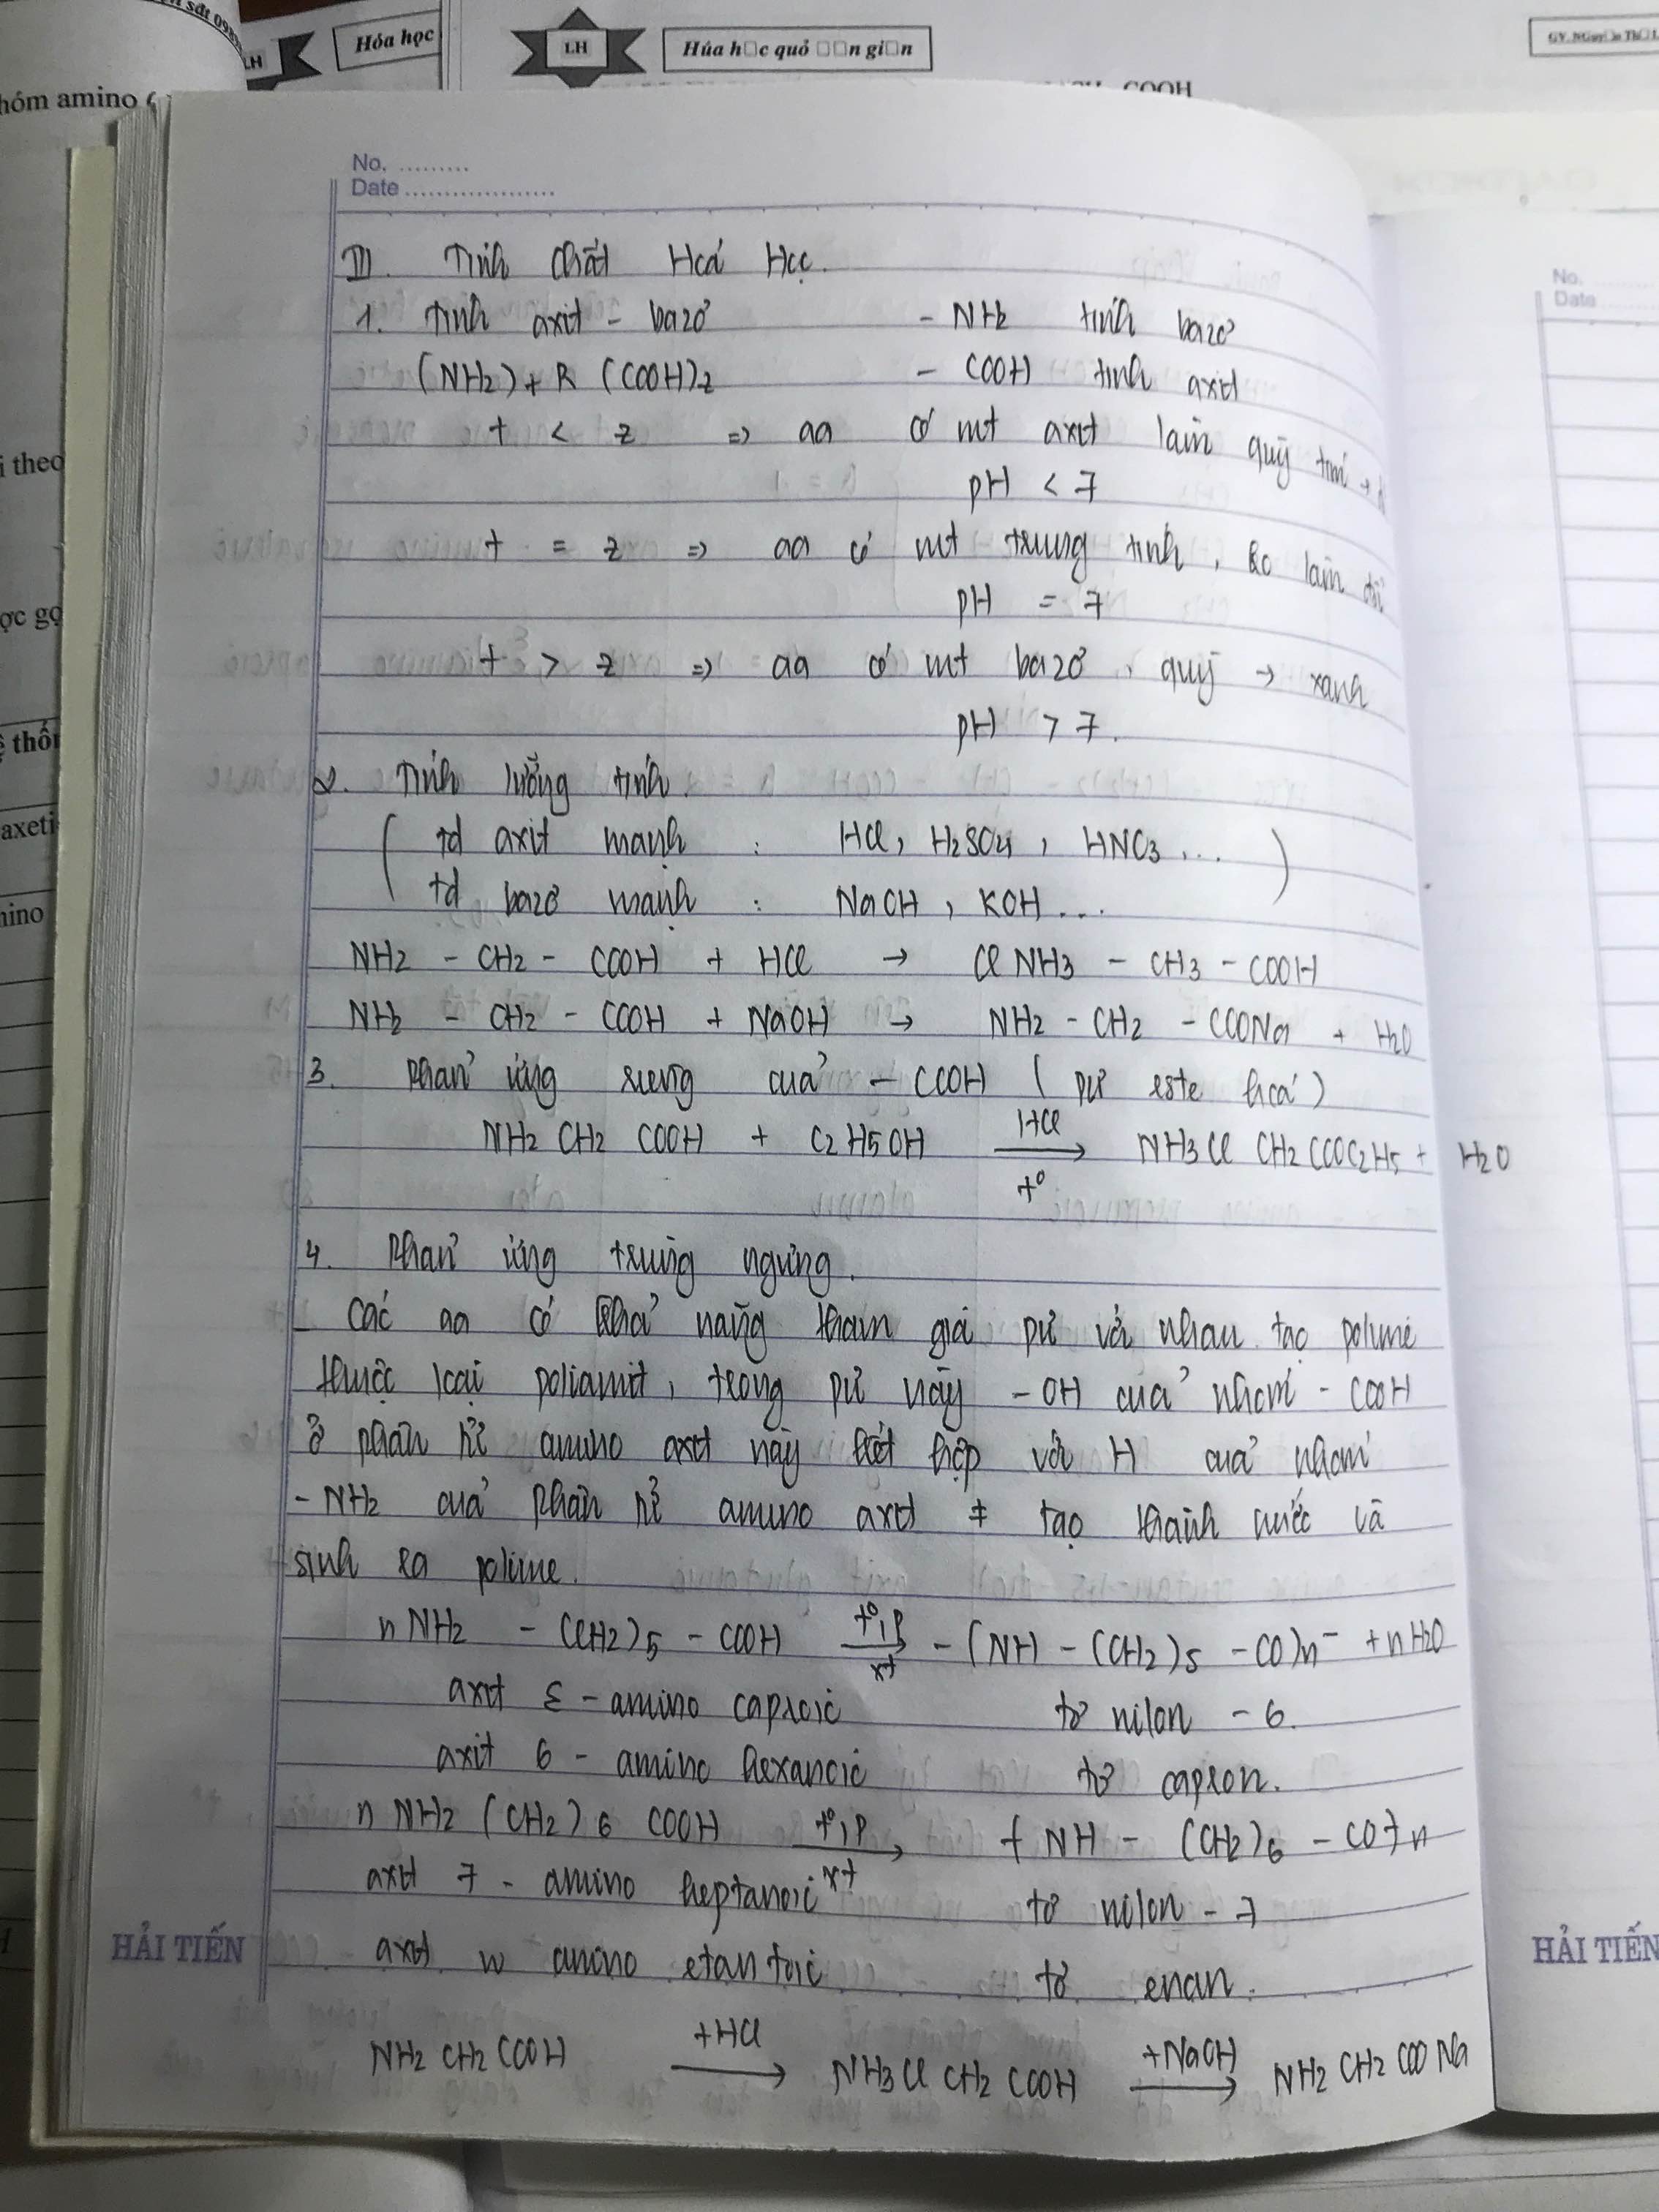 Hóa học
LH
LH
Húa h□c quỏ □□n gi□n
hóm amino
COOH
i theo
ợc gọ
axeti
nino
No. .........
Date ...................
No.
Date
III. Tính chất Hoá Học.
1. Tính axit - bazơ - NH2 tính bazơ
(NH2)t R (COOH)z - COOH tính axit
t < z => aa có mt axit làm quỳ tím →
pH < 7
t = z => aa có mt trung tính, ko làm đổi
pH = 7
t > z => aa có mt bazơ, quỳ → xanh
pH > 7.
2. Tính lưỡng tính.
( td axit mạnh : HCl, H2SO4, HNO3... )
td bazơ mạnh : NaOH, KOH...
NH2 - CH2 - COOH + HCl → ClNH3 - CH3 - COOH
NH2 - CH2 - COOH + NaOH → NH2 - CH2 - COONa + H2O
3. Phản ứng riêng của - COOH ( pư este hoá )
NH2 CH2 COOH + C2H5OH HCl → t° NH3Cl CH2 COOC2H5 + H2O
4. Phản ứng trùng ngưng.
- Các aa có khả năng tham gia pư với nhau tạo polime
thuộc loại poliamit, trong pư này -OH của nhóm - COOH
ở phân tử amino axit này kết hợp với H của nhóm
- NH2 của phân tử amino axit ≠ tạo thành nước và
sinh ra polime.
n NH2 - (CH2)5 - COOH t°, p → xt - (NH - (CH2)5 - CO)n- + nH2O
axit ε - amino caproic tơ nilon - 6.
axit 6 - amino hexanoic tơ capron.
n NH2 (CH2)6 COOH t°, p → xt ( NH - (CH2)6 - CO )n
axit 7 - amino heptanoic tơ nilon - 7
axit w amino etantoic tơ enan.
NH2 CH2 COOH +HCl → NH3Cl CH2 COOH +NaOH → NH2 CH2 COO Na
HẢI TIẾN
HẢI TIẾN